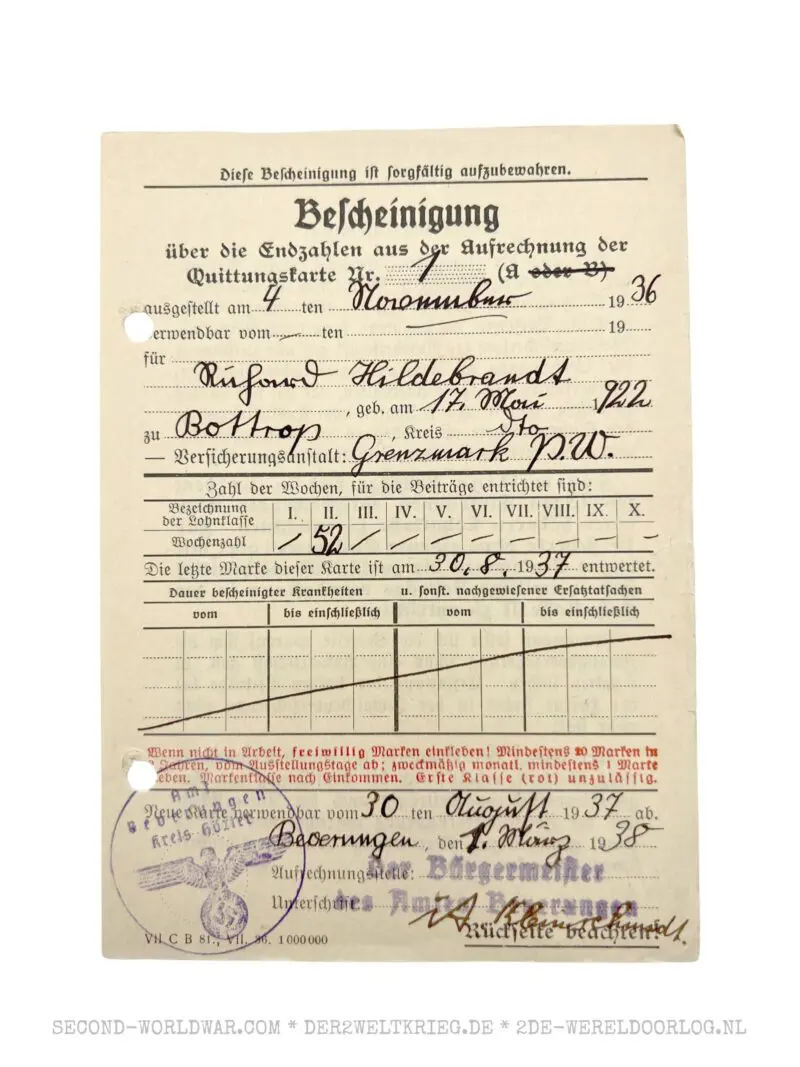 Diese Bescheinigung ist sorgfältig aufzubewahren.
Bescheinigung
über die Endzahlen aus der Aufrechnung der
Quittungskarte Nr. 1 (A oder B)
ausgestellt am 4 ten November 1936
verwendbar vom — ten 19
für
Richard Hildebrandt
, geb. am 17. Mai 1922
zu Bottrop, Kreis dto
— Versicherungsanstalt: Grenzmark P.W.
Zahl der Wochen, für die Beiträge entrichtet sind:
Bezeichnung der Lohnklasse I. II. III. IV. V. VI. VII. VIII. IX. X.
Wochenzahl / 52 / — — — — — — —
Die letzte Marke dieser Karte ist am 30.8.1937 entwertet.
Dauer bescheinigter Krankheiten u. sonst. nachgewiesener Ersatztatsachen
vom bis einschließlich vom bis einschließlich
Wenn nicht in Arbeit, freiwillig Marken einkleben! Mindestens 20 Marken in
Jahren, vom Ausstellungstage ab; zweckmäßig monatl. mindestens 1 Marke
kleben. Markenklasse nach Einkommen. Erste Klasse (rot) unzulässig.
Amt
Beverungen
Kreis Höxter
Neue Karte verwendbar vom 30 ten August 1937 ab.
Beverungen, den 1. März 1938
Aufrechnungsstelle: Der Bürgermeister
Unterschrift des Amtes Beverungen
VII C B 81., VII. 36. 1000000
Rückseite beachten!
SECOND-WORLDWAR.COM * DER2WELTKRIEG.DE * 2DE-WERELDOORLOG.NL